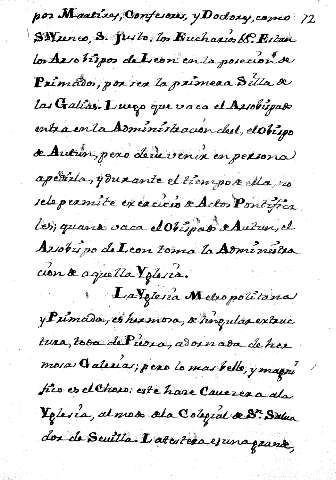 por Martires, Confesores, y Doctores, como 12
S. Justo, los Eucharios &c. Estan
los Arzobispos de Leon en la posecion de
Primados, por ser la primera Silla de
las Galias. Luego que vaca el Arzobispado
entra en la Administracion de el, el Obispo
de Autun, pero deve venir en persona
a pedirla, y durante el tiempo de ella, no
se le permite exercicio de Actos Pontifica
les; quando vaca el Obispado de Autun, el
Arzobispo de Leon toma la Administra
cion de aquella Yglesia.
La Yglesia Metropolitana
y Primada, es hermosa, de singular extruc
tura, toda de Piedra, adornada de her
mosas Galerias; pero lo mas bello, y magni
fico es el Choro: este hace Cavezera a la
Yglesia, al modo de la Colegial de Sn. Salva
dor de Sevilla. La testera es una grande,